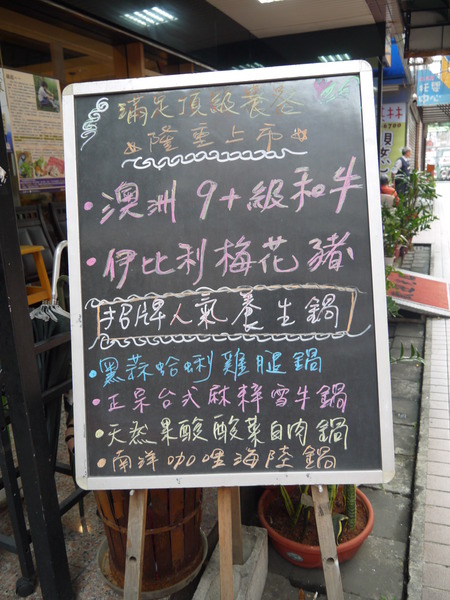 滿足頂級饕客
隆重上市
·澳洲9+級和牛
·伊比利梅花豬
招牌人氣養生鍋
·黑蒜蛤蜊雞腿鍋
·正呆台式麻粹雪牛鍋
·天然果酸酸菜白肉鍋
·南洋咖哩海陸鍋